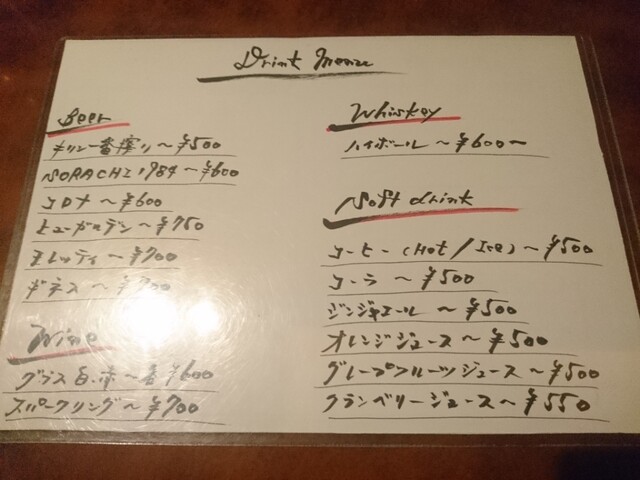 Drink Menu
Beer
キリン一番搾り～¥500
SORACHI 1984～¥600
コロナ～¥600
ヒューガルデン～¥750
モレッティ～¥700
ギネス～¥700
Wine
グラス白・赤～各¥600
スパークリング～¥700
Whiskey
ハイボール～¥600～
Soft drink
コーヒー(Hot/Ice)～¥500
コーラ～¥500
ジンジャエール～¥500
オレンジジュース～¥500
グレープフルーツジュース～¥500
クランベリージュース～¥550